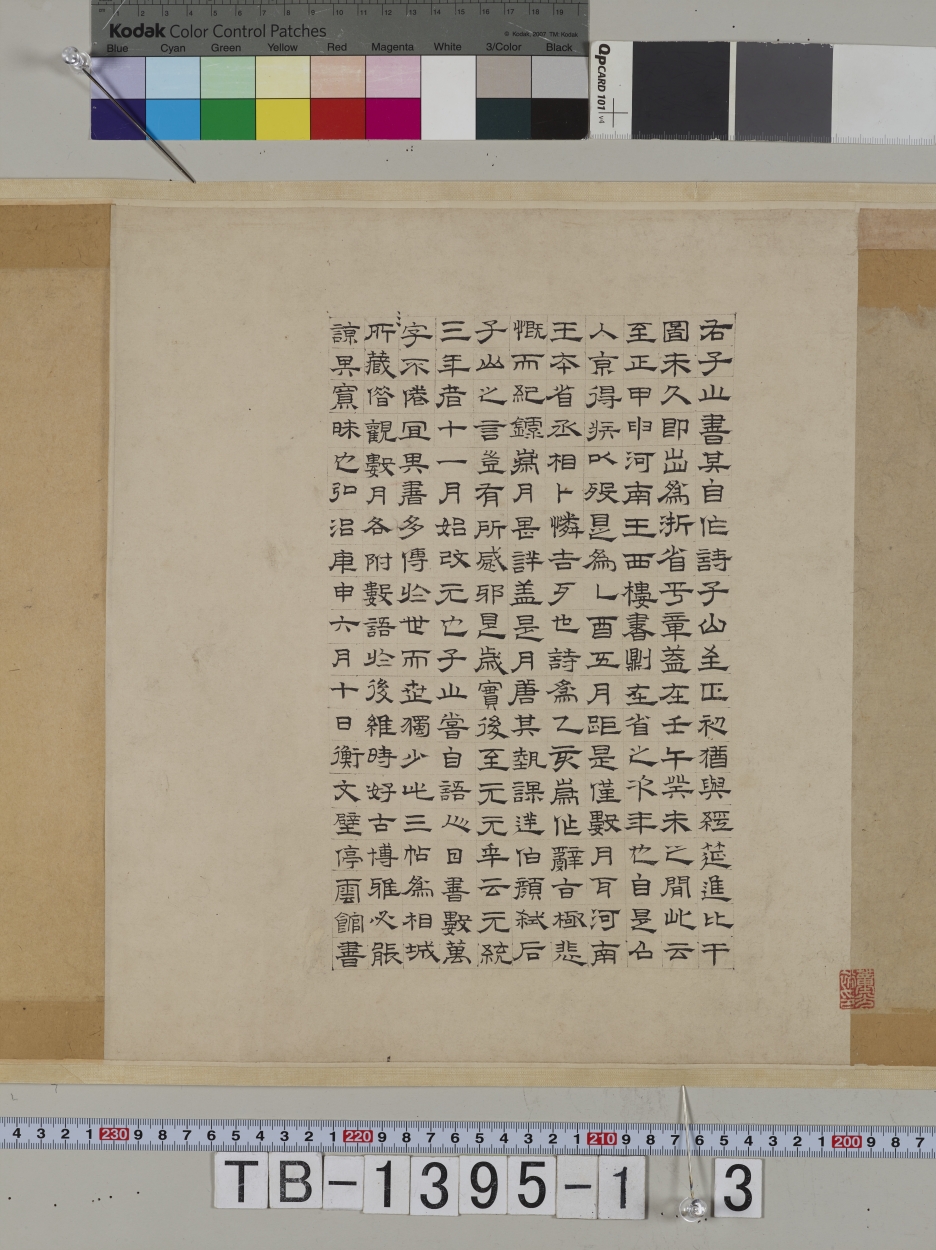 Kodak Color Control Patches
© Kodak, 2007 TM: Kodak
Blue Cyan Green Yellow Red Magenta White 3/Color Black
QPCARD 101 v4
右子山書其自作詩子山至正初猶與經筵進比干
圖未久即出為浙省平章蓋在壬午癸未之間此云
至正甲申河南王西樓書則在省之次年也自是召
入京得疾以歿是為乙酉五月距是僅數月耳河南
王本省丞相卜憐吉歹也詩為乙亥歲作辭古極悲
慨而紀歲月甚詳蓋是月唐其埶謀逆伯顏弒后
子山之言豈有所感邪是歲實後至元元年云元統
三年者十一月始改元也子山嘗自語人日書數萬
字不倦宜其書多傳於世而獨少此三帖為相城
所藏借觀數月各附數語於後維時好古博雅必能
諒其寡昧也弘治庚申六月十日衡文壁停雲館書
4 3 2 1 230 9 8 7 6 5 4 3 2 1 220 9 8 7 6 5 4 3 2 1 210 9 8 7 6 5 4 3 2 1 200 9 8 7
TB-1395-1 3